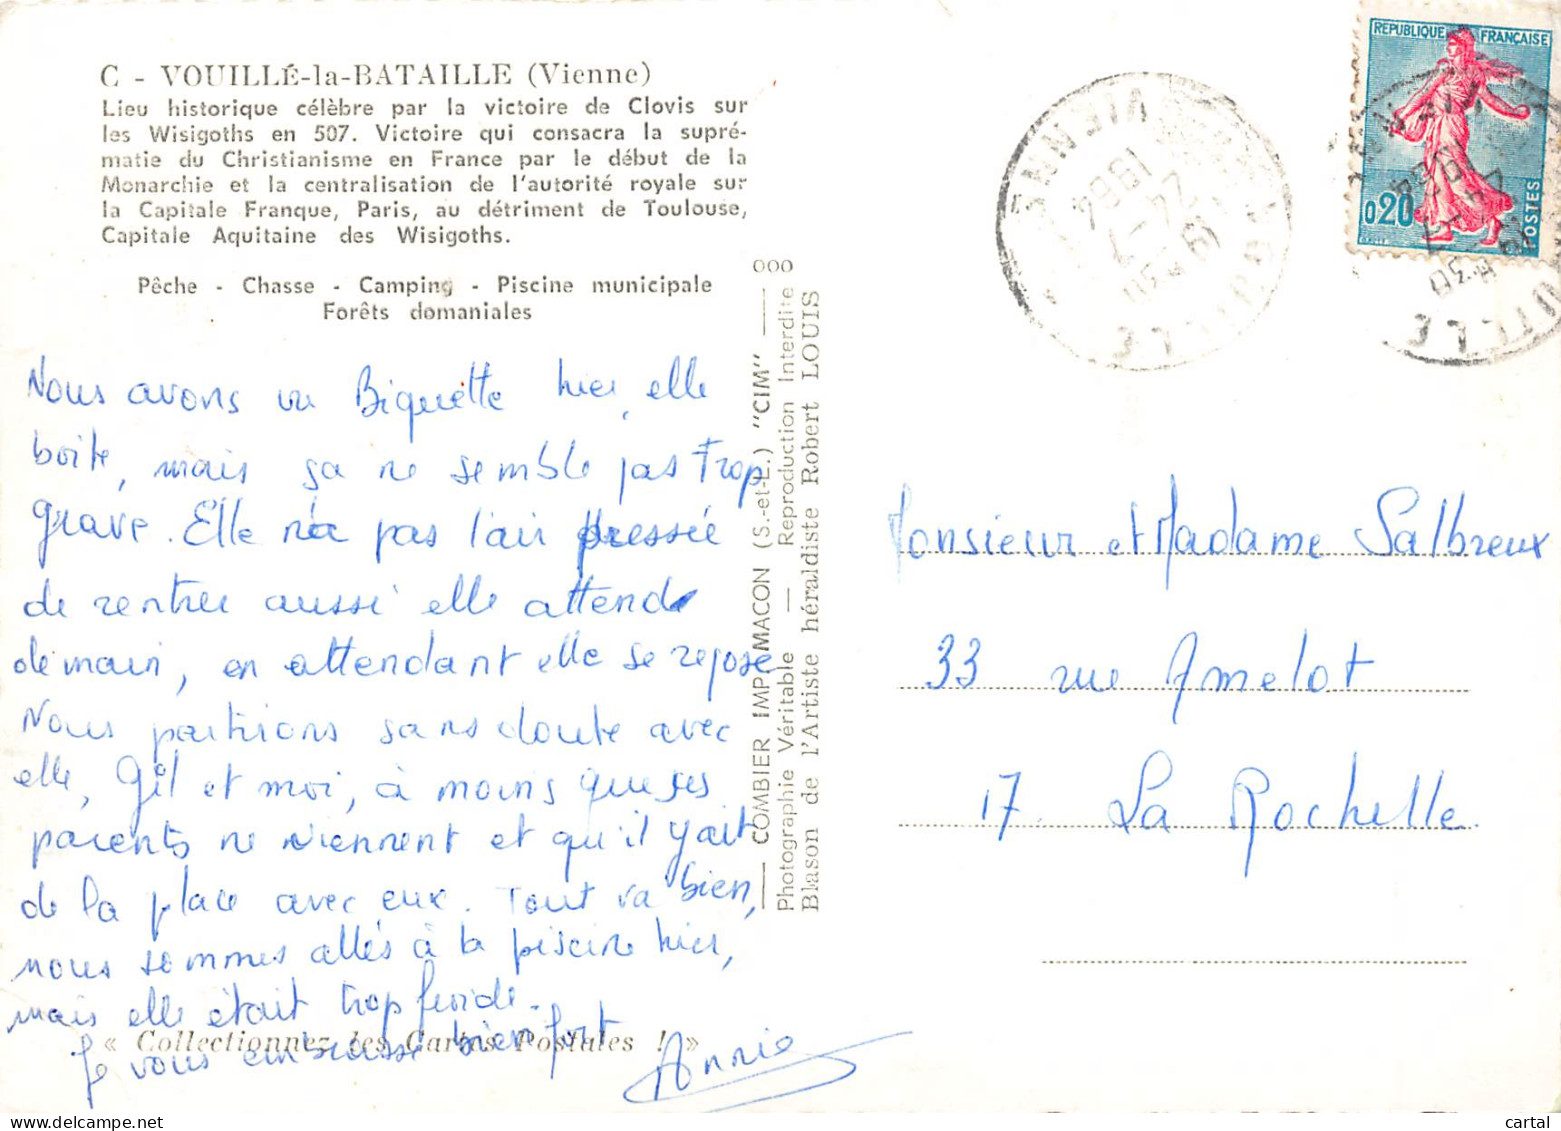 C - VOUILLÉ-la-BATAILLE (Vienne)
Lieu historique célèbre par la victoire de Clovis sur
les Wisigoths en 507. Victoire qui consacra la supré-
matie du Christianisme en France par le début de la
Monarchie et la centralisation de l'autorité royale sur
la Capitale Franque, Paris, au détriment de Toulouse,
Capitale Aquitaine des Wisigoths.
Pêche - Chasse - Camping - Piscine municipale
Forêts domaniales
Nous avons vu Biquette hier, elle
boite, mais ça ne semble pas trop
grave. Elle n'a pas l'air pressée
de rentrer aussi elle attend
demain, en attendant elle se repose
Nous partirons sans doute avec
elle, Gil et moi, à moins que ses
parents ne viennent et qu'il y ait
de la place avec eux. Tout va bien,
nous sommes allés à la piscine hier,
mais elle était trop froide.
Je vous embrasse bien fort
Annie
« Collectionnez les Cartes Postales ! »
COMBIER IMP. MACON (S.-et-L.) "CIM" 000
Photographie Véritable — Reproduction Interdite
Blason de l'Artiste héraldiste Robert LOUIS
VIENNE
19 H 30
24-7
1964
VOUILLE
REPUBLIQUE FRANÇAISE
0.20
POSTES
Monsieur et Madame Salbreux
33 rue Amelot
17 La Rochelle
www.delcampe.net
cartal